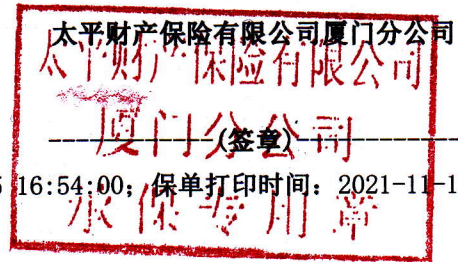 太平财产保险有限公司厦门分公司
太平财产保险有限公司
厦门分公司
(签章)
16:54:00; 保单打印时间: 2021-11-1
承保专用章